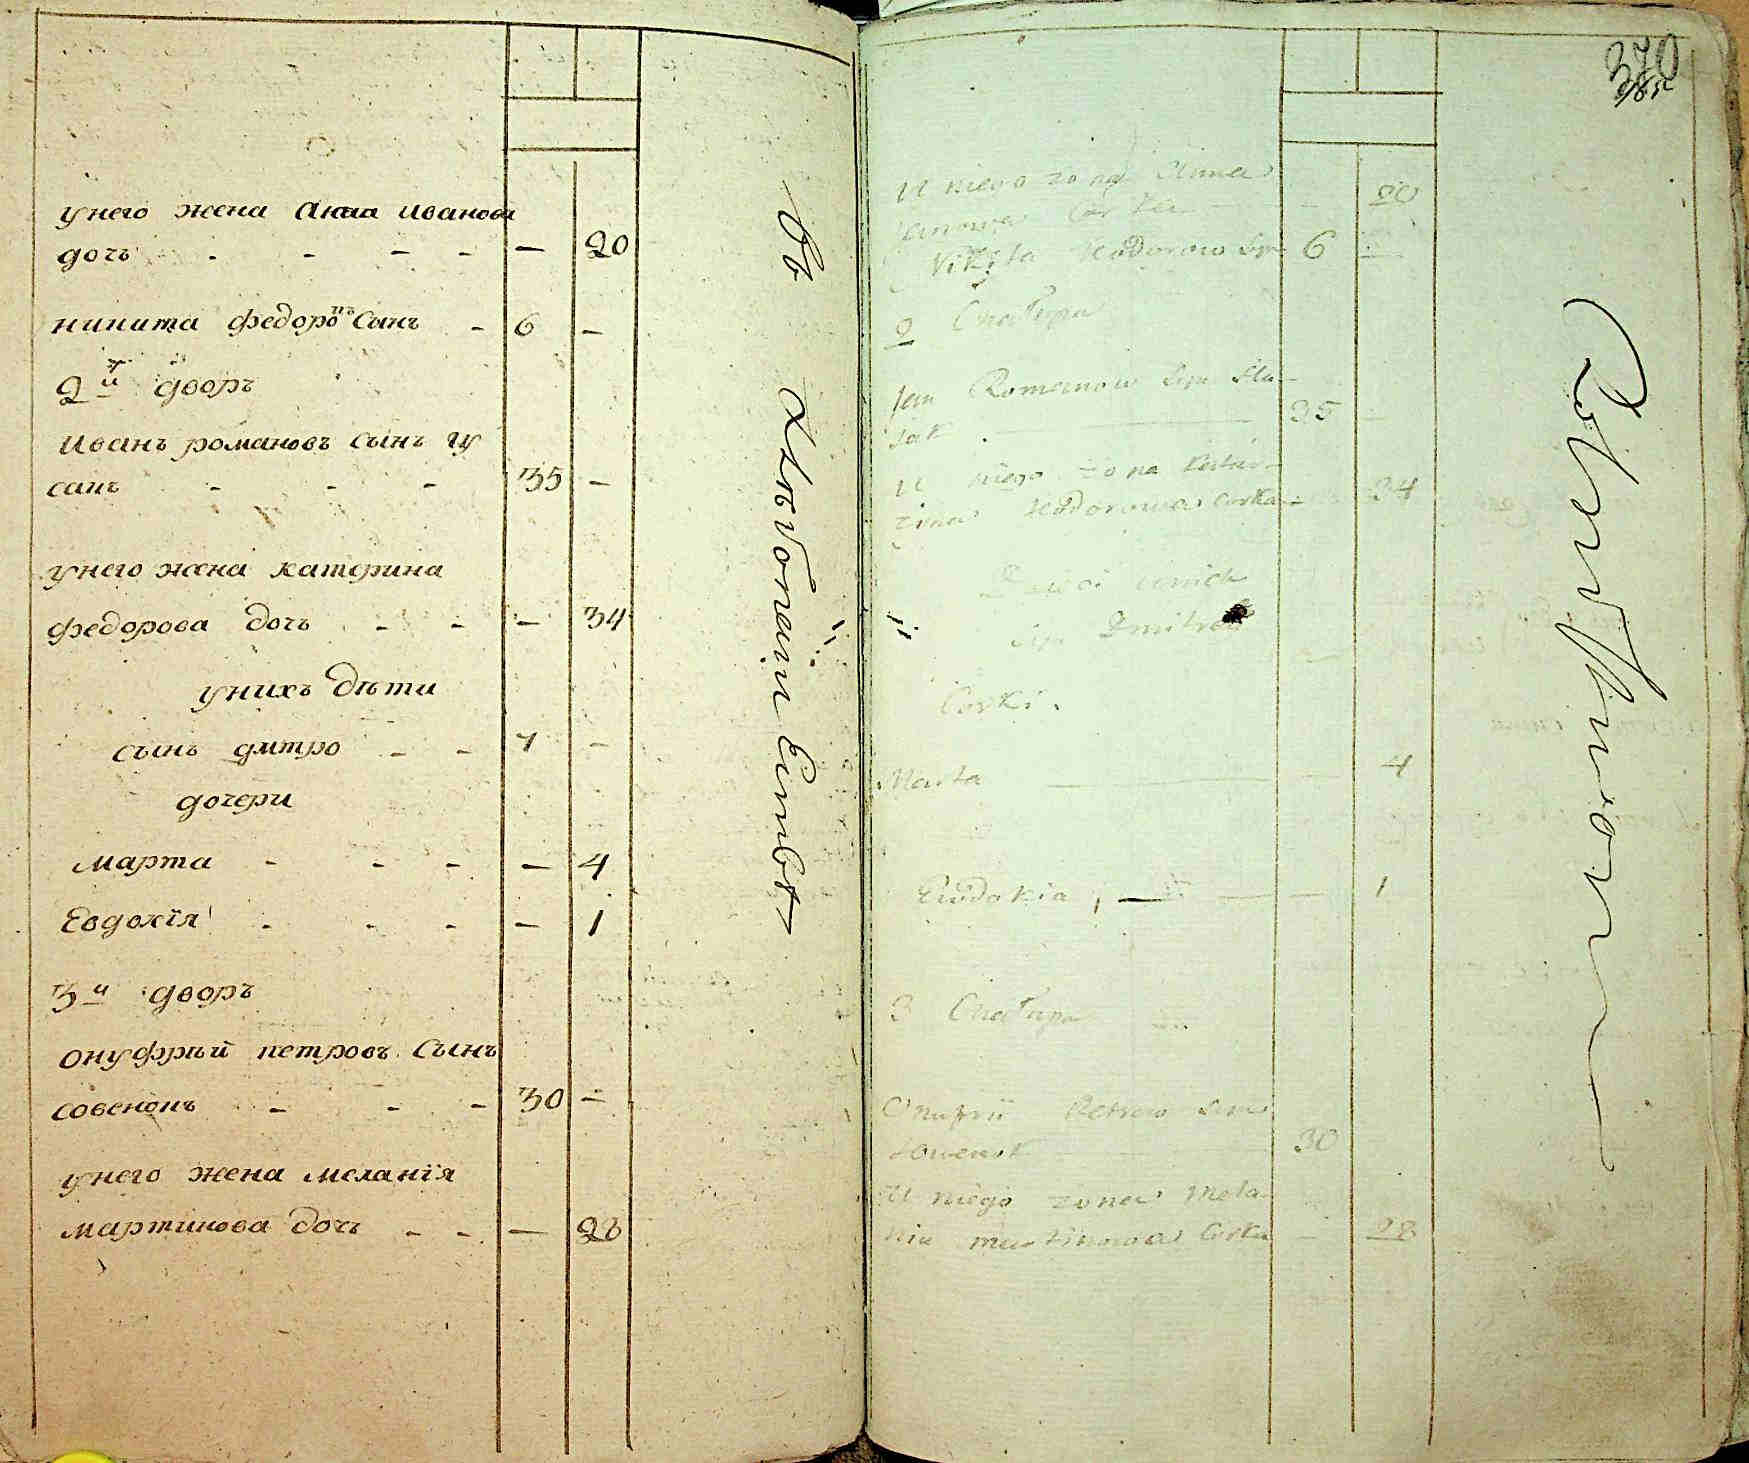 унего жена Анна иванова
дочь - - - - - 20
никита федоровъ Сынъ - 6 -
2й дворъ
иванъ романовъ сынъ гу
сакъ - - - 35 -
унего жена катерина
федорова дочь - - - 34
унихъ дѣти
сынъ дмтро - -
дочери
марта - - - - 4
Евдокія - - - - 1
3й дворъ
онуфрѣй петровъ Сынъ
совенокъ - - - 30 -
унего жена меланія
мартинова дочь - - - 28
въ
370
U niego zona Anna
Janowa Corka - 20
Nikita Hodorow Syn 6 -
2 Chałupa
Jan Romanow Syn Hu-
sak 35 -
U niego zona Katar-
zina Hodorowa Corka - 34
Syn Dmitro
Corki
Marta - 4
Eudokia - 1
3 Chałupa
Onufrii Petrow Syn
Sowenok 30
U niego zona Mela-
nia Martinowa Corka - 28